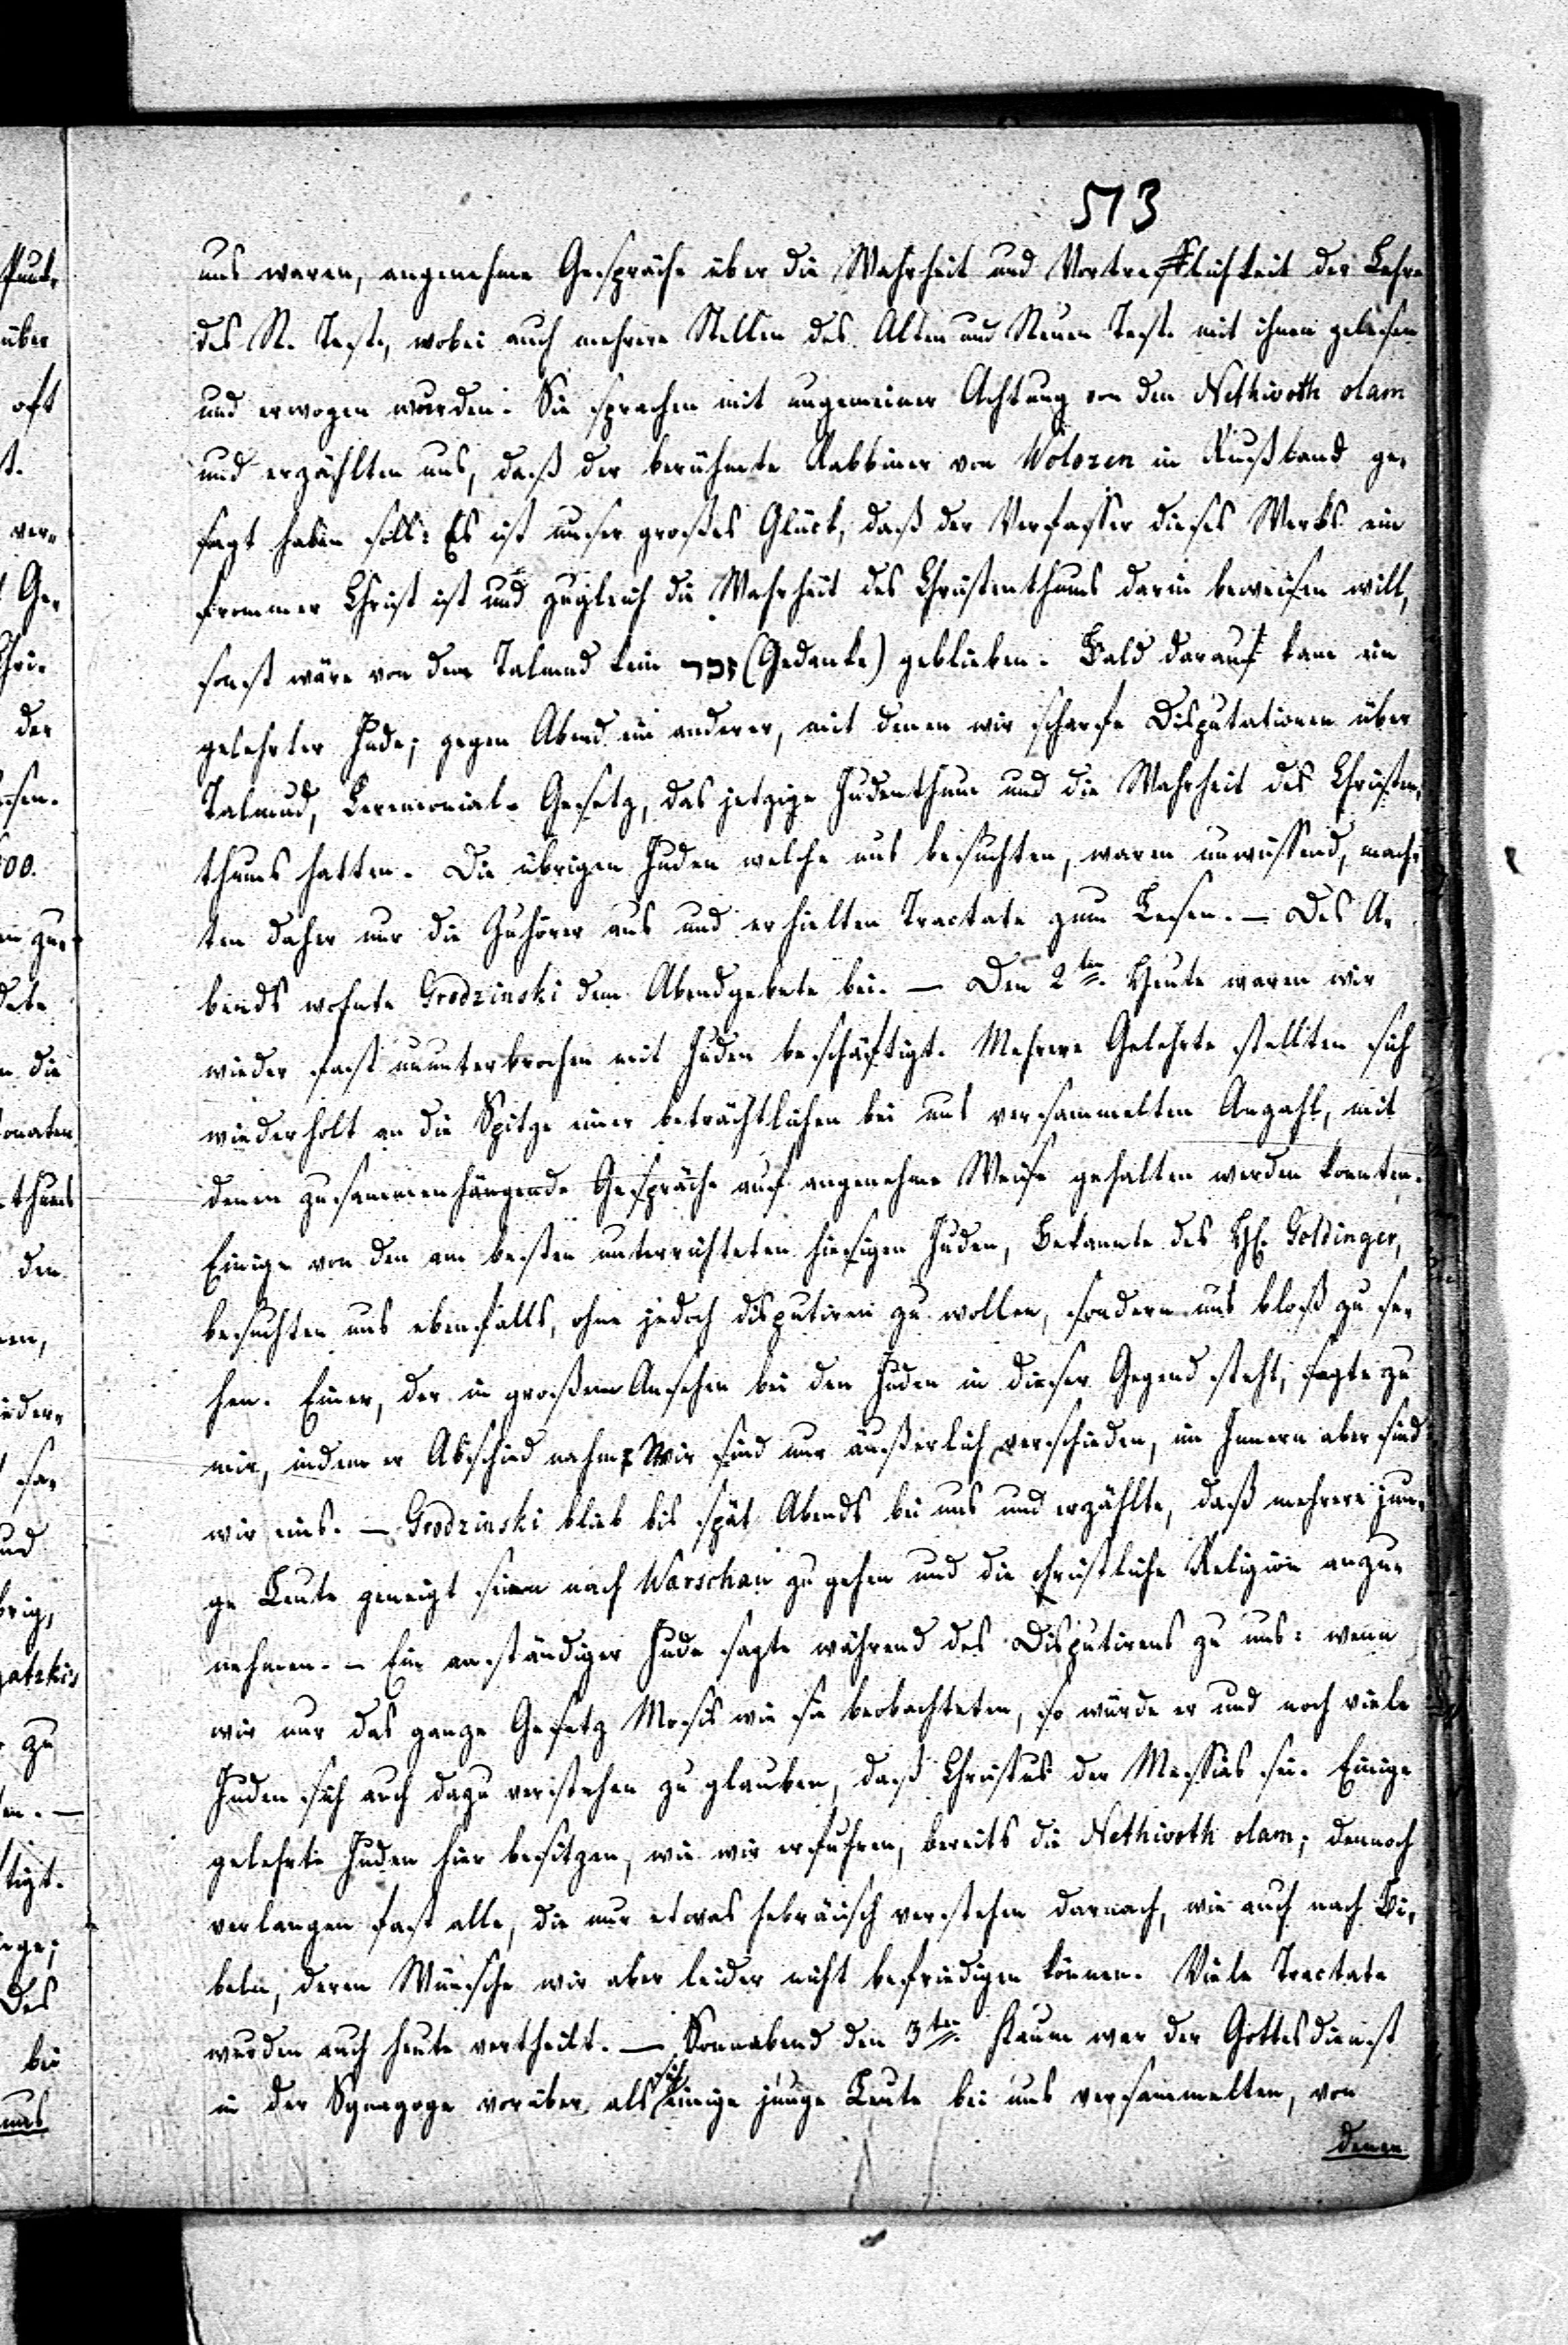 513
uns waren, angenehme Gespräche über die Wahrheit und Vortrefflichkeit der Lehre
des N. Test., wobei auch mehrere Stellen des Alten und Neuen Test. mit ihnen gelesen
und erwogen wurden. Sie sprachen mit ungemeiner Achtung von den Nethivoth olam
und erzählten uns, daß der berühmte Rabbiner von Wolozen in Rußland ge-
sagt haben soll: Es ist unser großes Glück, daß der Verfasser dieses Werks ein
frommer Christ ist und zugleich die Wahrheit des Christenthums darin beweisen will,
sonst wäre von dem Talmud kein זכר (Gedanke) geblieben. Bald darauf kam ein
gelehrter Jude; gegen Abend ein anderer, mit denen wir scharfe Disputationen über
Talmud, Ceremonial-Gesetz, das jetzige Judenthum und die Wahrheit des Christen-
thums hatten. Die übrigen Juden welche uns besuchten, waren unwissend, mach-
ten daher nur die Zuhörer aus und erhielten Tractate zum Lesen. — Des A-
bends wohnte Grodzinski dem Abendgebete bei. — Den 2ten. Heute waren wir
wieder fast ununterbrochen mit Juden beschäftigt. Mehrere Gelehrte stellten sich
wiederholt an die Spitze einer beträchtlichen bei uns versammelten Anzahl, mit
denen zusammenhängende Gespräche auf angenehme Weise gehalten werden konnten.
Einige von den am besten unterrichteten hiesigen Juden, Bekannte des H. Goldinger,
besuchten uns ebenfalls, ohne jedoch disputiren zu wollen, sondern uns bloß zu se-
hen. Einer, der in großem Ansehen bei den Juden in dieser Gegend steht, sagte zu
mir, indem er Abschied nahm: Wir sind nur äußerlich verschieden, im Innern aber sind
wir eins. — Grodzinski blieb bis spät Abends bei uns und erzählte, daß mehrere jun-
ge Leute geneigt seien nach Warschau zu gehen und die christliche Religion anzu-
nehmen. — Ein anständiger Jude sagte während des Disputirens zu uns: wenn
wir nur das ganze Gesetz Mosis wie sie beobachteten, so würde er und noch viele
Juden sich auch dazu verstehen zu glauben, daß Christus der Messias sei. Einige
gelehrte Juden hier besitzen, wie wir erfuhren, bereits die Nethivoth olam; dennoch
verlangen fast alle, die nur etwas hebräisch verstehen darnach, wie auch nach Bi-
beln, deren Wünsche wir aber leider nicht befriedigen können. Viele Tractate
wurden auch heute vertheilt. — Sonnabend den 3ten. Kaum war der Gottesdienst
in der Synagoge vorüber, als sich einige junge Leute bei uns versammelten, von
denen